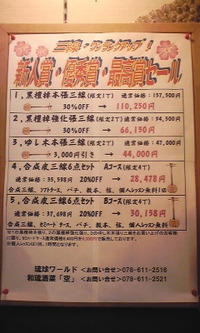 三線・ランクアップ!
新人賞・優秀賞・最高賞セール
1, 黒檀棹本張三線(限定1丁) 通常価格:157,500円
30%OFF → 110,250円
2, 黒檀棹強化張三線(限定1丁) 通常価格:94,500円
30%OFF → 66,150円
3, ゆし木本張三線(限定2丁) 通常価格:47,000円
3,000円引き → 44,000円
4, 合成皮三線6点セット Aコース(限定4丁)
通常価格:35,598円 20%OFF → 28,478円
合成三線、ソフトケース、バチ、教本、弦、個人レッスン無料1回
5, 合成皮三線6点セット Bコース(限定4丁)
通常価格:37,698円 20%OFF → 30,158円
合成三線、セミハードケース、バチ、教本、弦、個人レッスン無料1回
琉球ワールド <お問い合せ>078-611-2516
和琉酒菜「空」 <お問い合せ>078-611-2521